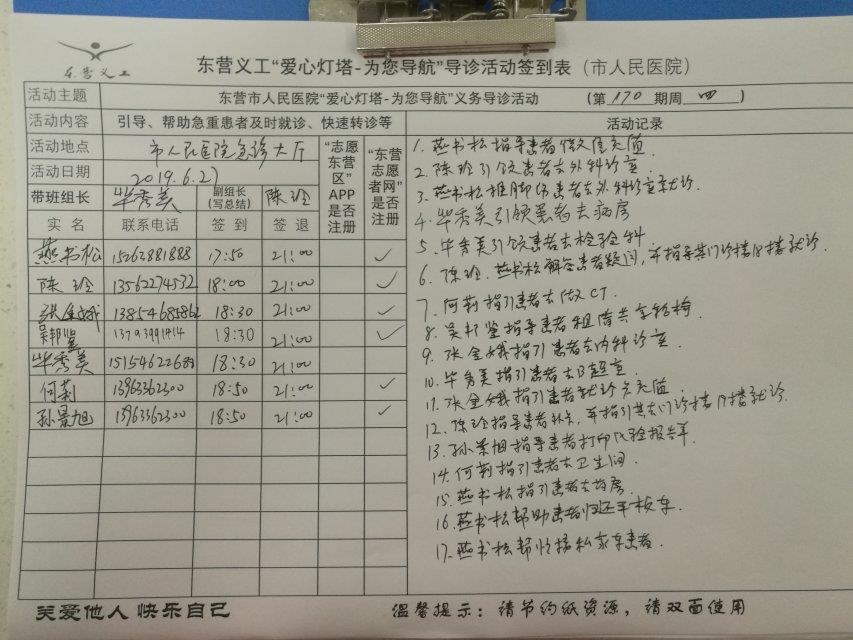 东营义工
东营义工“爱心灯塔-为您导航”导诊活动签到表（市人民医院）
活动主题 东营市人民医院“爱心灯塔-为您导航”义务导诊活动 （第 170 期周 四 ）
活动内容 引导、帮助急重患者及时就诊、快速转诊等
活动地点 市人民医院急诊大厅
活动日期 2019.6.27
带班组长 毕秀美 副组长（写总结） 陈玲
“志愿东营区”APP是否注册
“东营志愿者网”是否注册
实名 联系电话 签到 签退
燕书松 15262881888 17:50 21:00 ✓
陈玲 13562274532 18:00 21:00 ✓
张金娥 13854685862 18:30 21:00 ✓
吴邦鉴 18:30 21:00 ✓
毕秀美 18:30 21:00
何莉 13963362300 18:50 21:00 ✓
孙景旭 13963362300 18:50 21:00 ✓
活动记录
1. 燕书松指导患者做 充值.
2. 陈玲引领患者去外科诊室.
3. 燕书松推脚伤患者去外科诊室就诊.
4. 毕秀美引领患者去病房
5. 毕秀美引领患者去检验科
6. 陈玲、燕书松解答患者疑问,并指导其门诊楼 楼就诊.
7. 何莉指引患者去做CT.
8. 吴邦鉴指导患者租借共享轮椅.
9. 张金娥指引患者去内科诊室
10. 毕秀美指引患者去B超室.
11. 张金娥指引患者就诊卡充值.
12. 陈玲指导患者补卡,并指引其去门诊楼 楼就诊.
13. 孙景旭指导患者打印化验报告单.
14. 何莉指引患者去卫生间.
15. 燕书松指引患者去药房.
16. 燕书松帮助患者归还平板车.
17. 燕书松帮忙搀私家车患者.
关爱他人 快乐自己
温馨提示：请节约纸资源，请双面使用